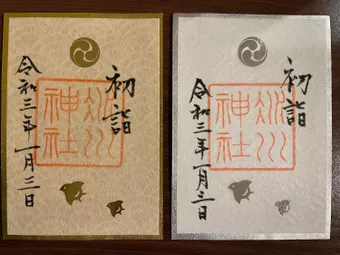 初詣
神社
令和三年一月三日
初詣
神社
令和三年一月三日